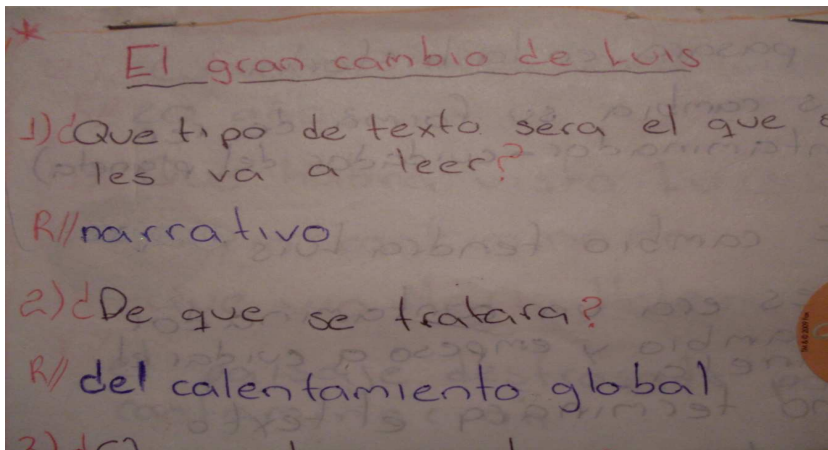 *
El gran cambio de Luis
1) ¿Que tipo de texto sera el que
les va a leer?
R// narrativo
2) ¿De que se tratara?
R// del calentamiento global